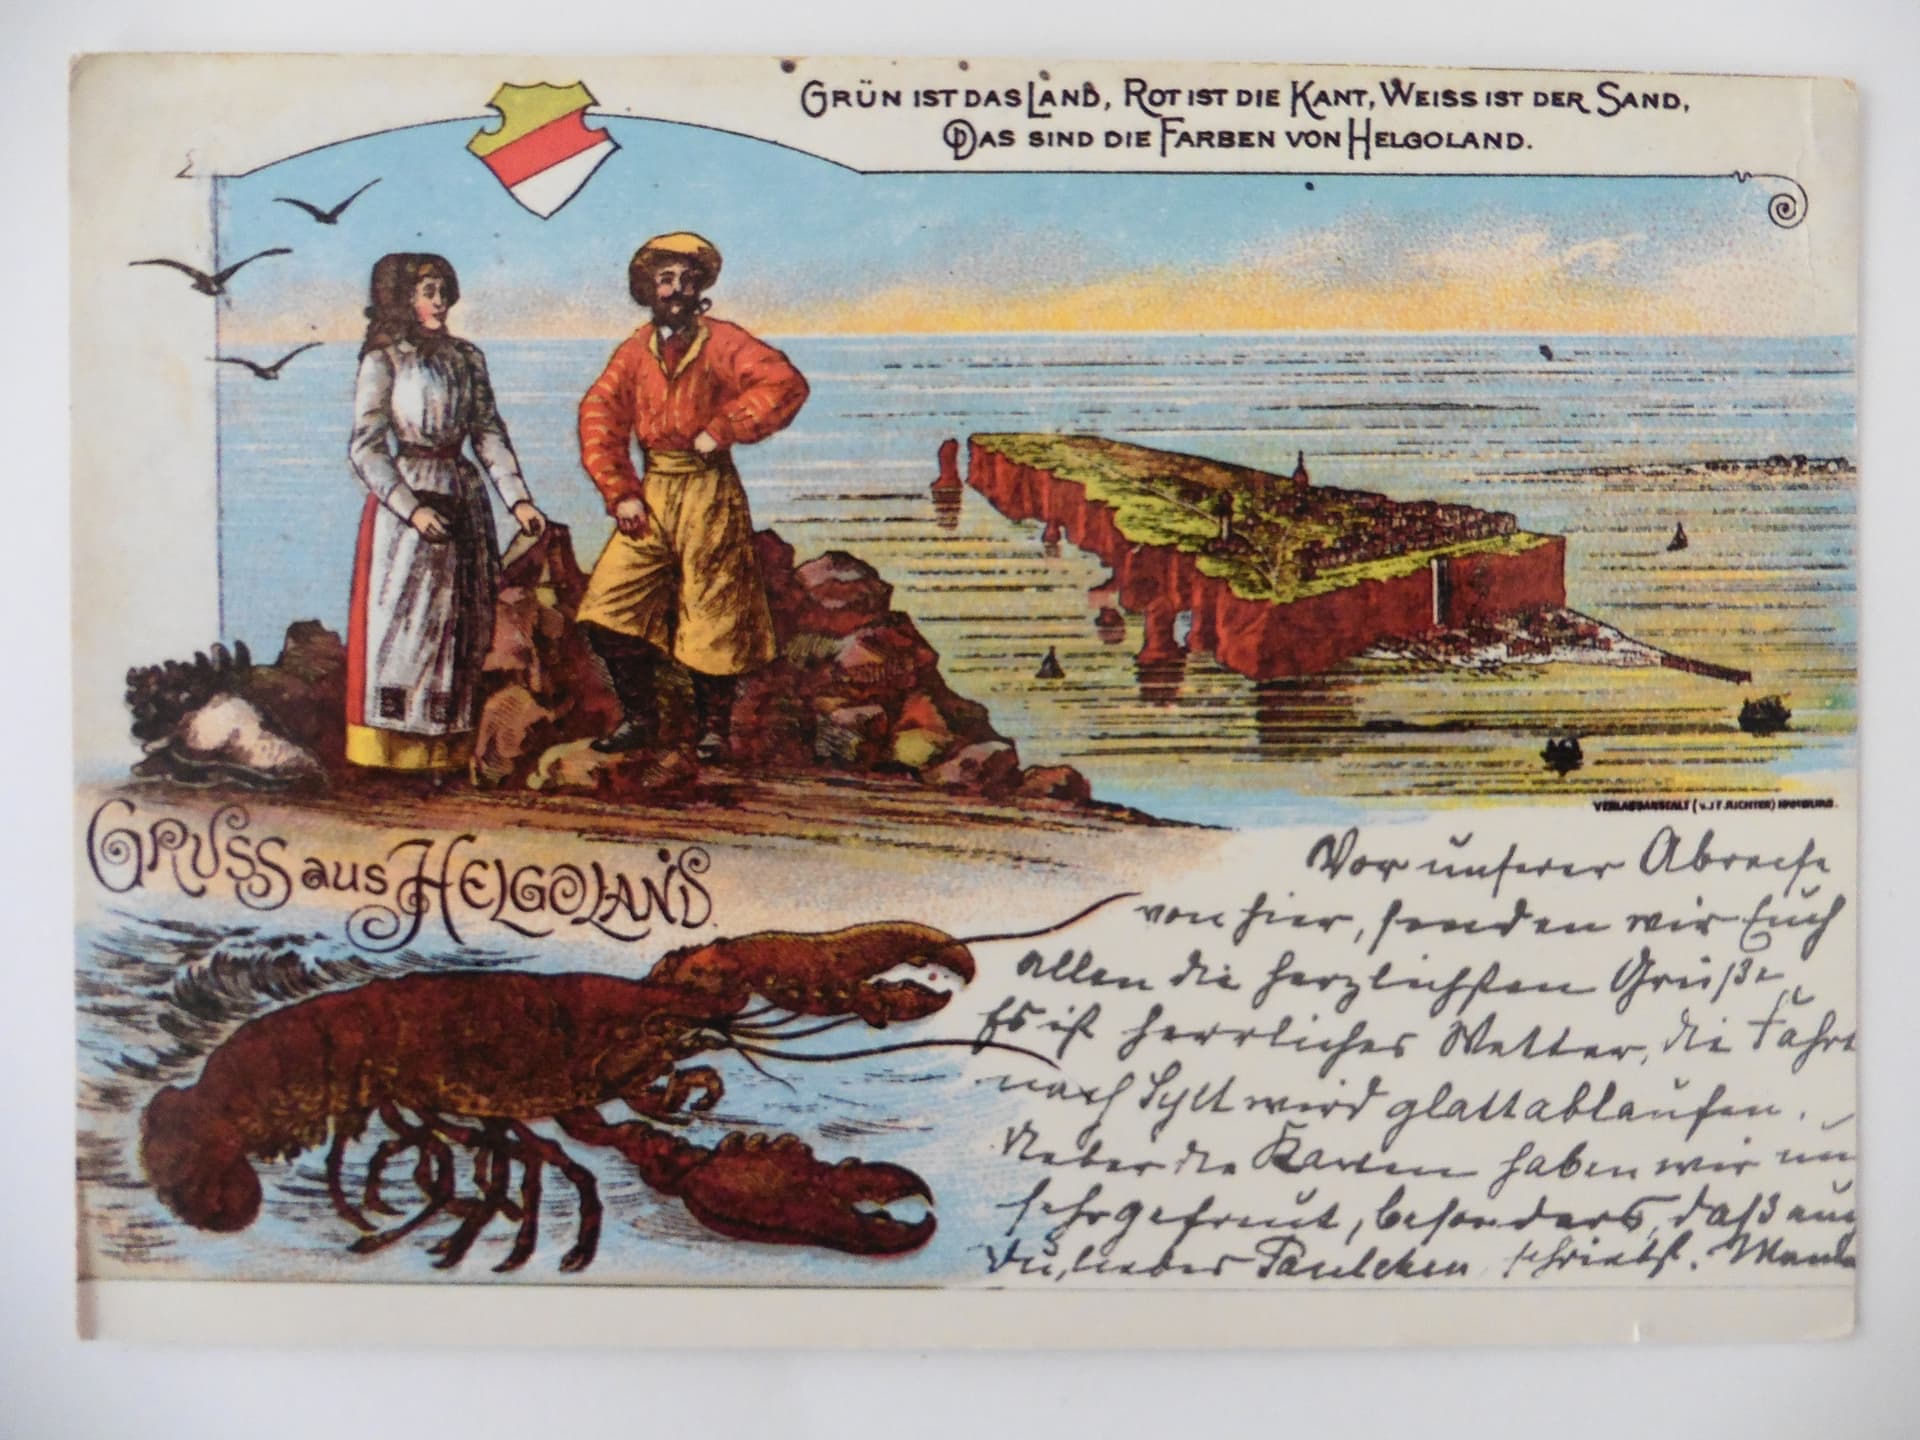 GRÜN IST DAS LAND, ROT IST DIE KANT, WEISS IST DER SAND,
DAS SIND DIE FARBEN VON HELGOLAND.
VERLAGSANSTALT (v. J F. RICHTER) HAMBURG.
GRUSS aus HELGOLAND.
Vor unserer Abreise
von hier, senden wir Euch
allen die herzlichsten Grüße
Es ist herrliches Wetter, die Fahrt
nach Sylt wird glatt ablaufen.
Ueber die Karten haben wir un
sehr gefreut, besonders, daß auch
Du, lieber Paulchen schriebst.